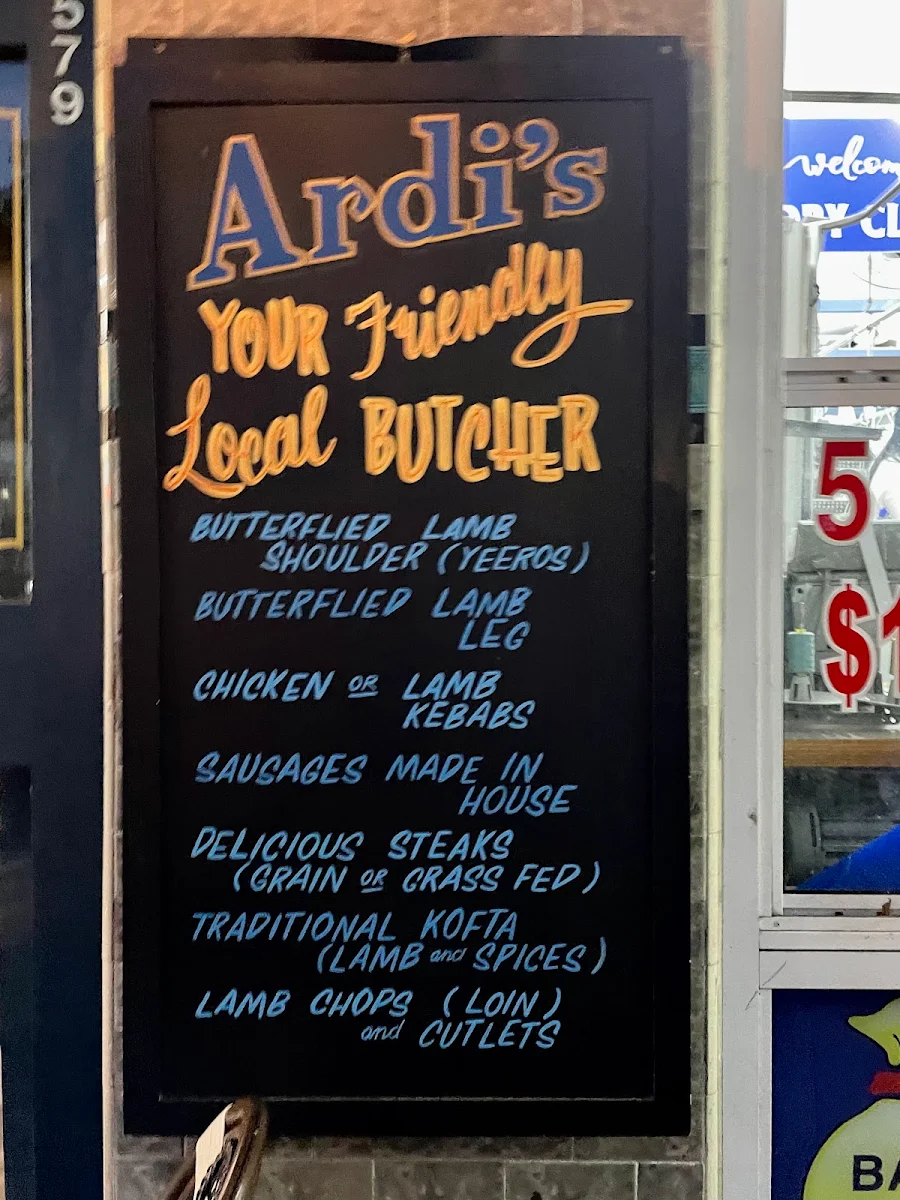 579
Ardi's
YOUR Friendly
Local BUTCHER
BUTTERFLIED LAMB
SHOULDER (YEEROS)
BUTTERFLIED LAMB
LEG
CHICKEN OR LAMB
KEBABS
SAUSAGES MADE IN
HOUSE
DELICIOUS STEAKS
(GRAIN OR GRASS FED)
TRADITIONAL KOFTA
(LAMB and SPICES)
LAMB CHOPS (LOIN)
and CUTLETS
5
$1